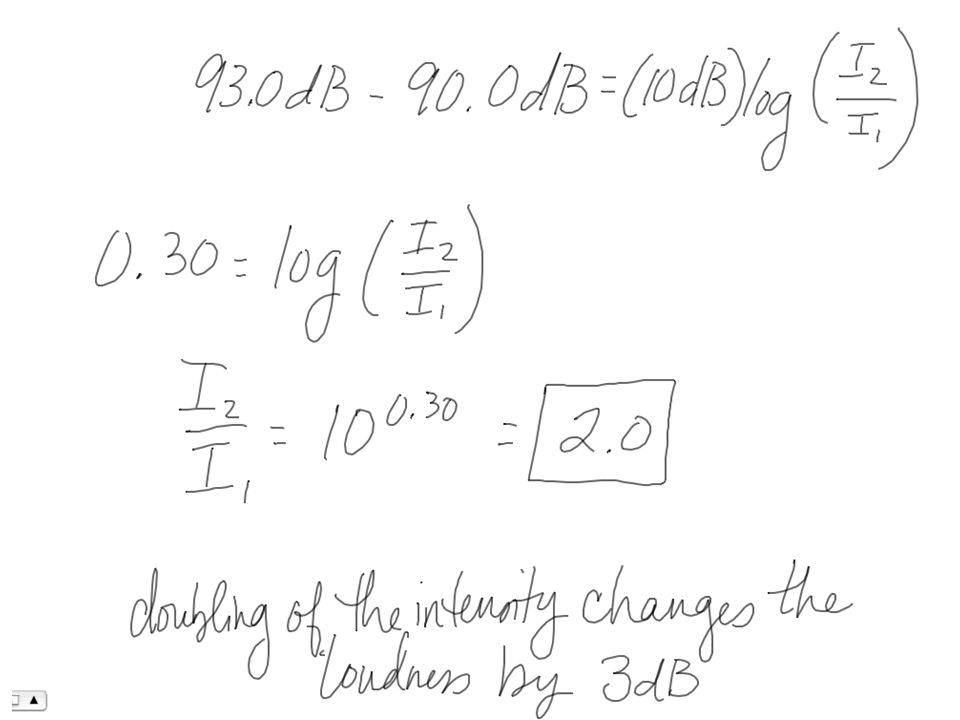 93.0dB - 90.0dB = (10dB) log (I₂/I₁)
0.30 = log (I₂/I₁)
I₂/I₁ = 10^0.30 = 2.0
doubling of the intensity changes the
loudness by 3dB